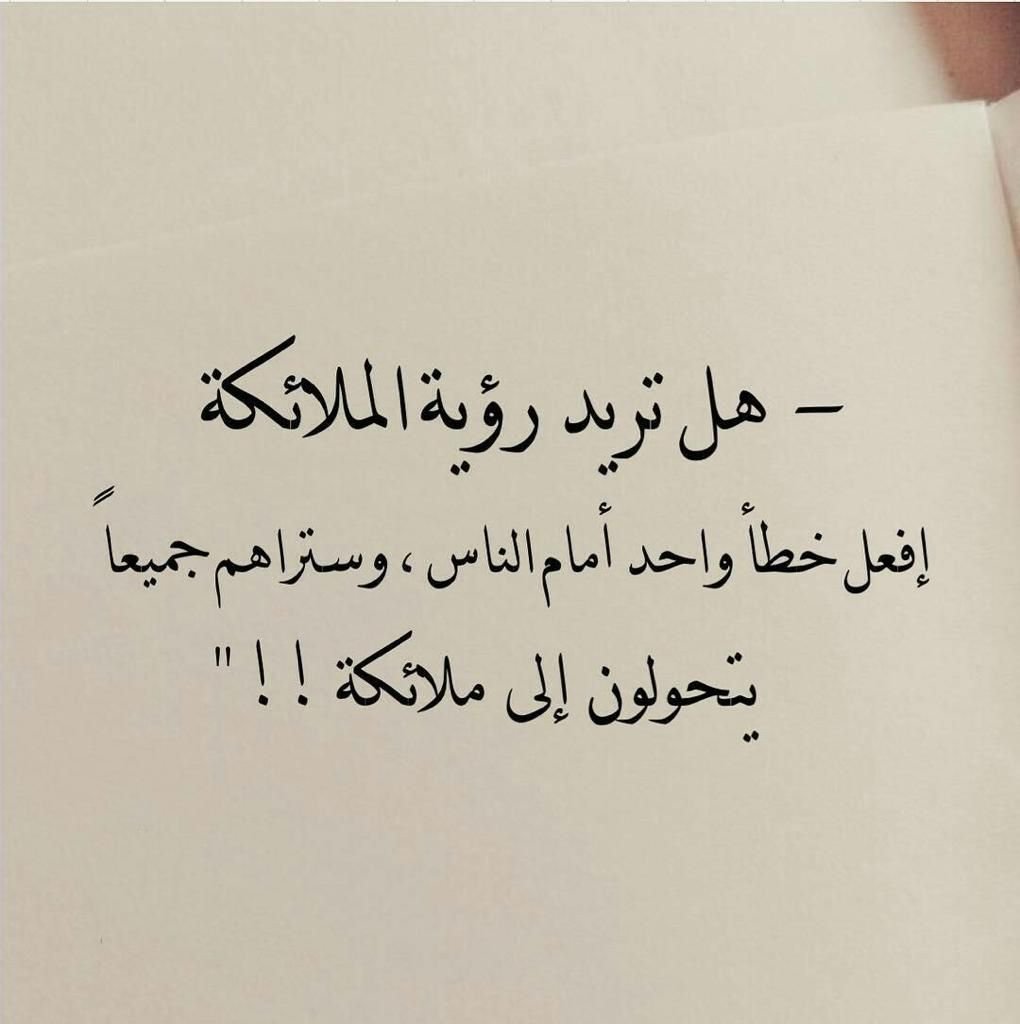 – هل تريد رؤية الملائكة
إفعل خطأ واحد أمام الناس ، وستراهم جميعاً
يتحولون إلى ملائكة ! ! "